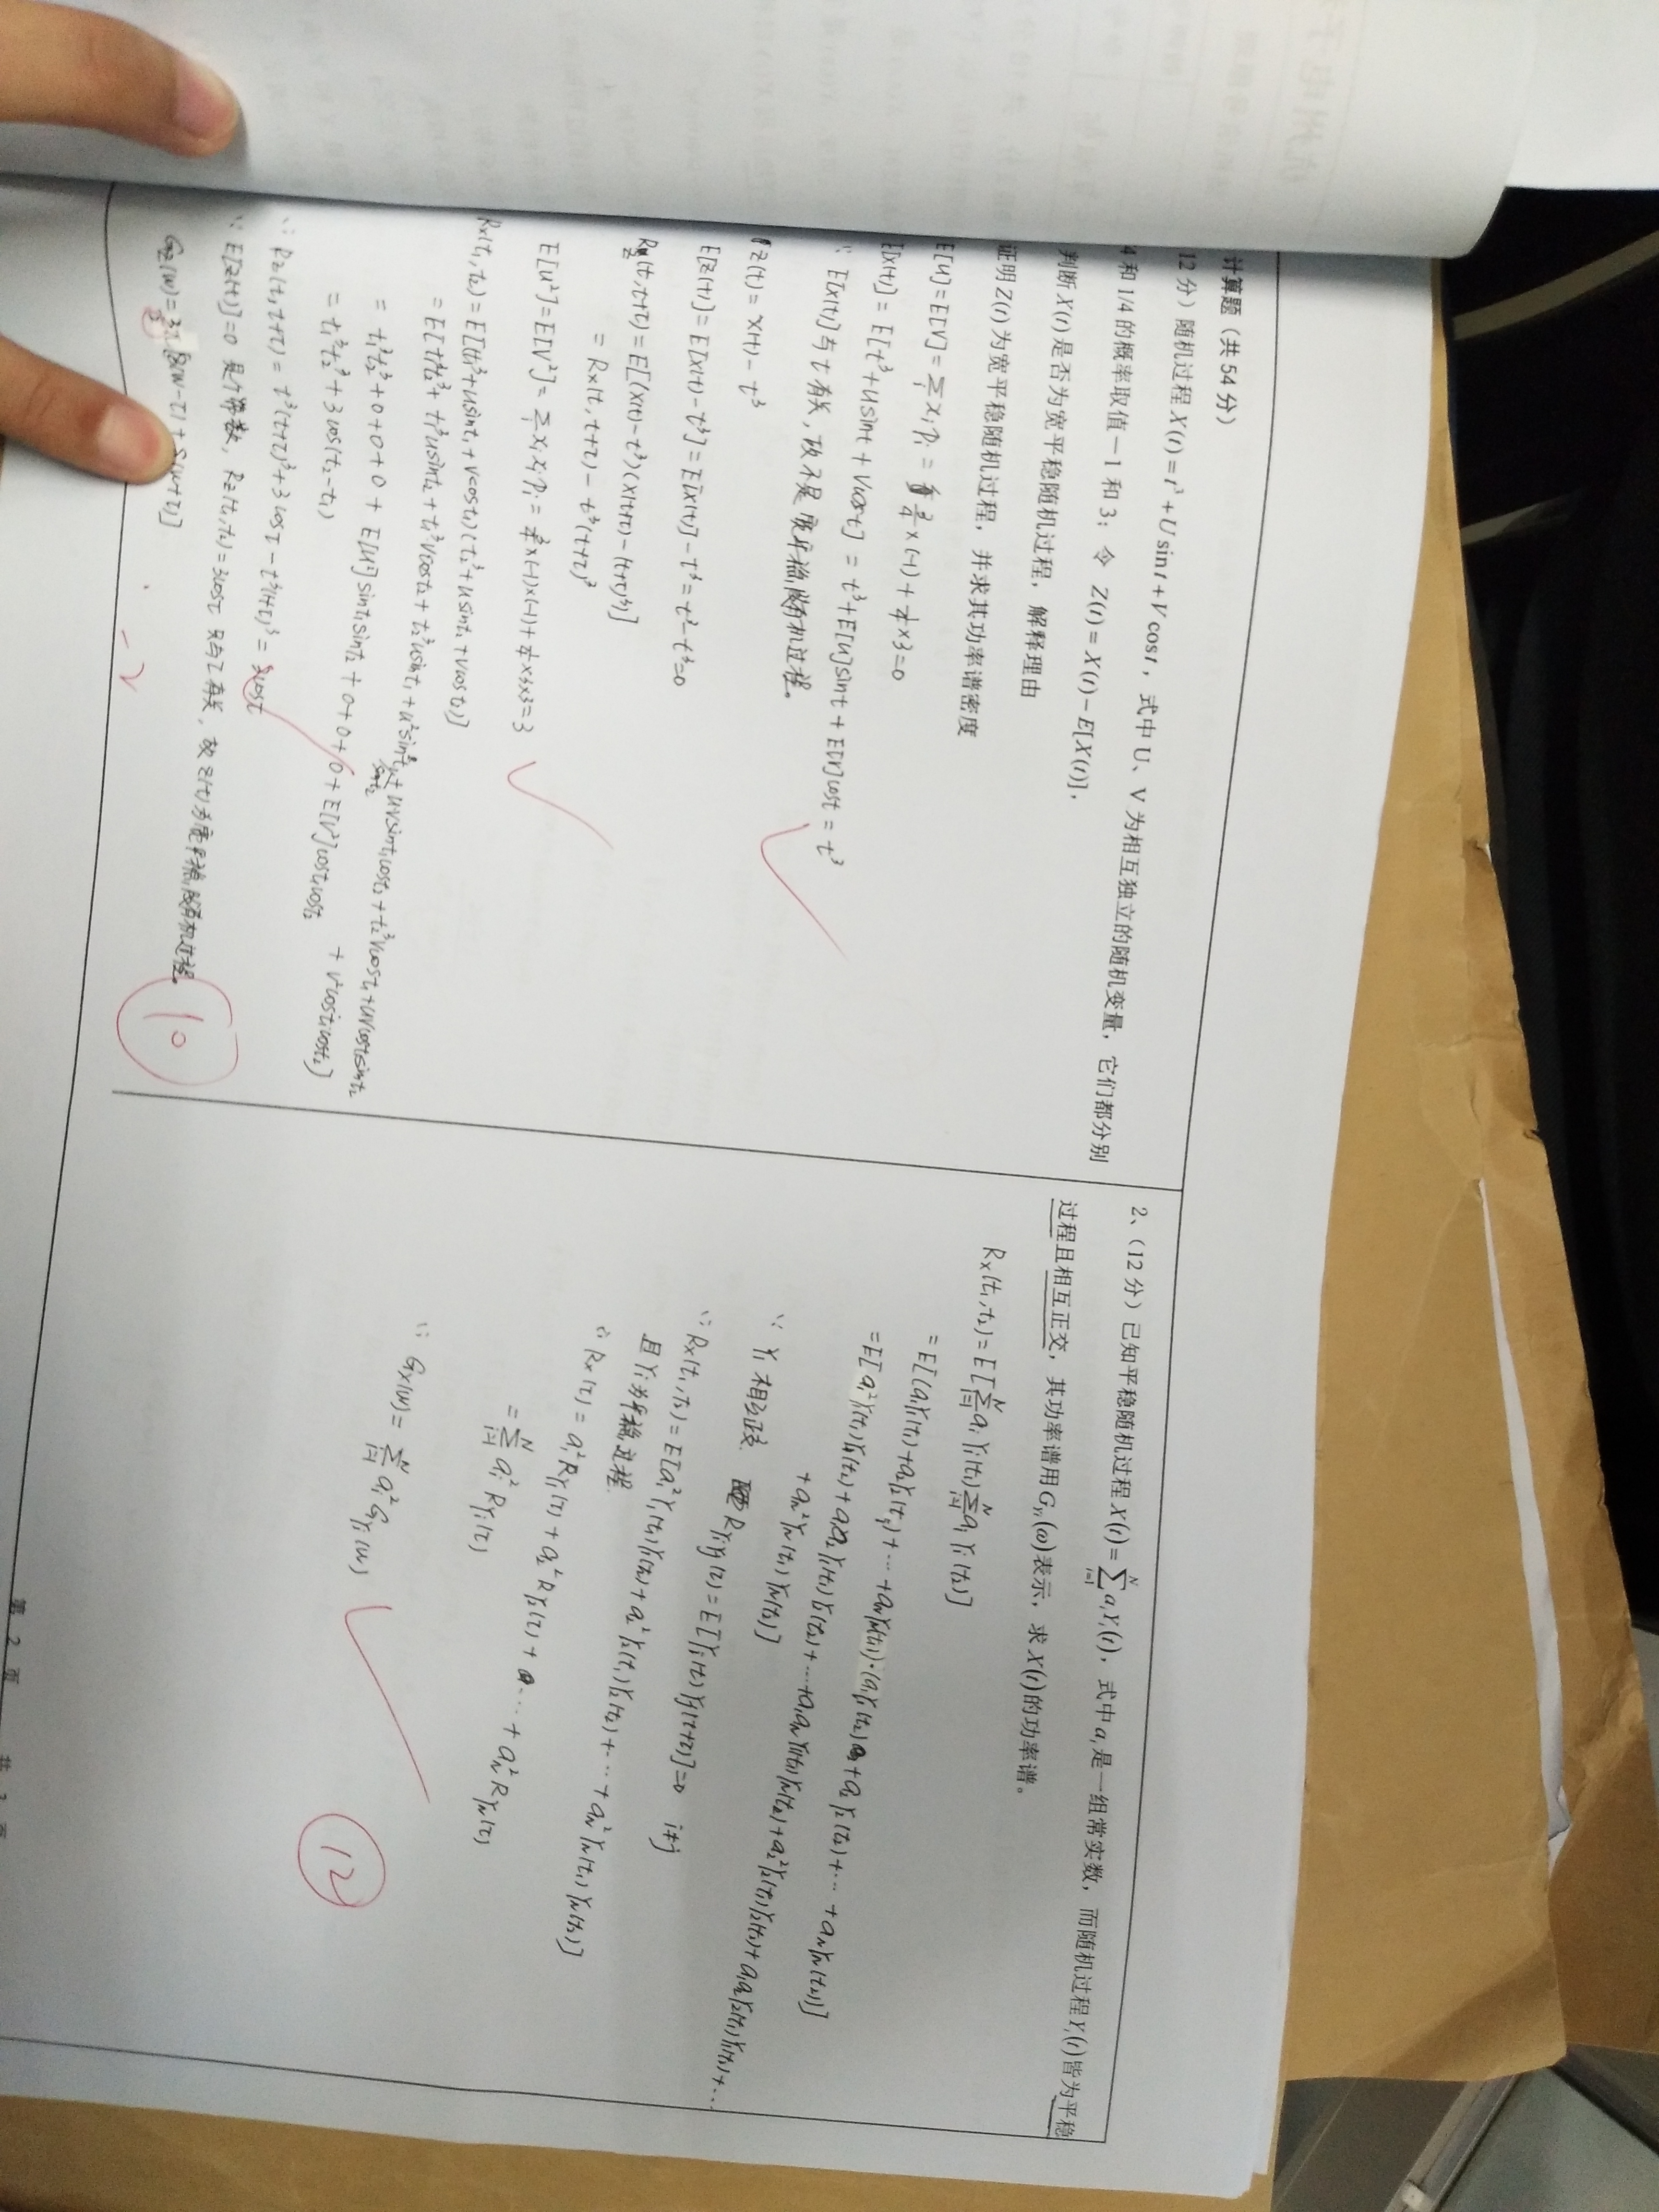 杭州电子
计算题（共 54 分）
12 分）随机过程 X(t)=t³+U sin t+V cos t，式中 U、V 为相互独立的随机变量，它们都分别
4 和 1/4 的概率取值－1 和 3；令 Z(t)=X(t)−E[X(t)]，
判断 X(t) 是否为宽平稳随机过程，解释理由
证明 Z(t) 为宽平稳随机过程，并求其功率谱密度
E[U]=E[V]=∑ᵢ xᵢ pᵢ = 3/4×(-1)+1/4×3=0
E[X(t)] = E[t³+Usint+Vcost] = t³+E[U]sint+E[V]cost = t³
∵ E[X(t)]与 t 有关，故不是宽平稳随机过程。
Z(t)= X(t)- t³
E[Z(t)]=E[X(t)-t³]=E[X(t)]-t³=t³-t³=0
R_Z(t,t+τ)=E[(X(t)-t³)(X(t+τ)-(t+τ)³)]
= Rx(t,t+τ)- t³(t+τ)³
E[U²]=E[V²]= ∑ᵢ xᵢ xᵢ pᵢ = 3/4×(-1)×(-1)+1/4×3×3=3
Rx(t₁,t₂)=E[(t₁³+usint₁+vcost₁)(t₂³+usint₂+vcost₂)]
= E[t₁³t₂³+ t₁³usint₂+t₁³vcost₂+t₂³usint₁+u²sint₁sint₂+uvsint₁cost₂+t₂³vcost₁+uvcost₁sint₂
+ v²cost₁cost₂]
= t₁³t₂³+0+0+0+E[U²]sint₁sint₂+0+0+0+E[V²]cost₁cost₂
= t₁³t₂³+3cos(t₂-t₁)
∴ Rz(t,t+τ)= t³(t+τ)³+3cosτ-t³(t+τ)³= 3cosτ
∵ E[Z(t)]=0 是个常数，Rz(t₁,t₂)=3cosτ 只与τ有关，故 Z(t)为宽平稳随机过程。
Gz(w)= [δ(w-τ)+δ(w+τ)]
-2
10
2、（12 分）已知平稳随机过程 X(t)=∑ᵢ₌₁ᴺ aᵢYᵢ(t)，式中 aᵢ 是一组常实数，而随机过程 Yᵢ(t) 皆为平稳
过程且相互正交，其功率谱用 G_Yi(ω) 表示，求 X(t) 的功率谱。
Rx(t₁,t₂)=E[∑ᵢ₌₁ᴺ aᵢ Yᵢ(t₁)∑ᵢ₌₁ᴺ aᵢ Yᵢ(t₂)]
=E[(a₁Y₁(t₁)+a₂Y₂(t₁)+⋯+a_NY_N(t₁))·(a₁Y₁(t₂)+a₂Y₂(t₂)+⋯+a_NY_N(t₂))]
=E[a₁²Y₁(t₁)Y₁(t₂)+a₁a₂Y₁(t₁)Y₂(t₂)+⋯+a₁a_NY₁(t₁)Y_N(t₂)+a₂²Y₂(t₁)Y₂(t₂)+a₁a₂Y₂(t₁)Y₁(t₂)+⋯
+a_N²Y_N(t₁)Y_N(t₂)]
∵ Yᵢ 相互正交. R_YiYj(τ)=E[Yᵢ(t)Yⱼ(t+τ)]=0 i≠j
∴ Rx(t₁,t₂)=E[a₁²Y₁(t₁)Y₁(t₂)+a₂²Y₂(t₁)Y₂(t₂)+⋯+a_N²Y_N(t₁)Y_N(t₂)]
且Yᵢ为平稳过程.
∴ Rx(τ)= a₁²R_Y₁(τ)+a₂²R_Y₂(τ)+⋯+a_N²R_YN(τ)
=∑ᵢ₌₁ᴺ aᵢ² R_Yi(τ)
∴ Gx(w)=∑ᵢ₌₁ᴺ aᵢ²G_Yi(w)
12
第 2 页 共 3 页